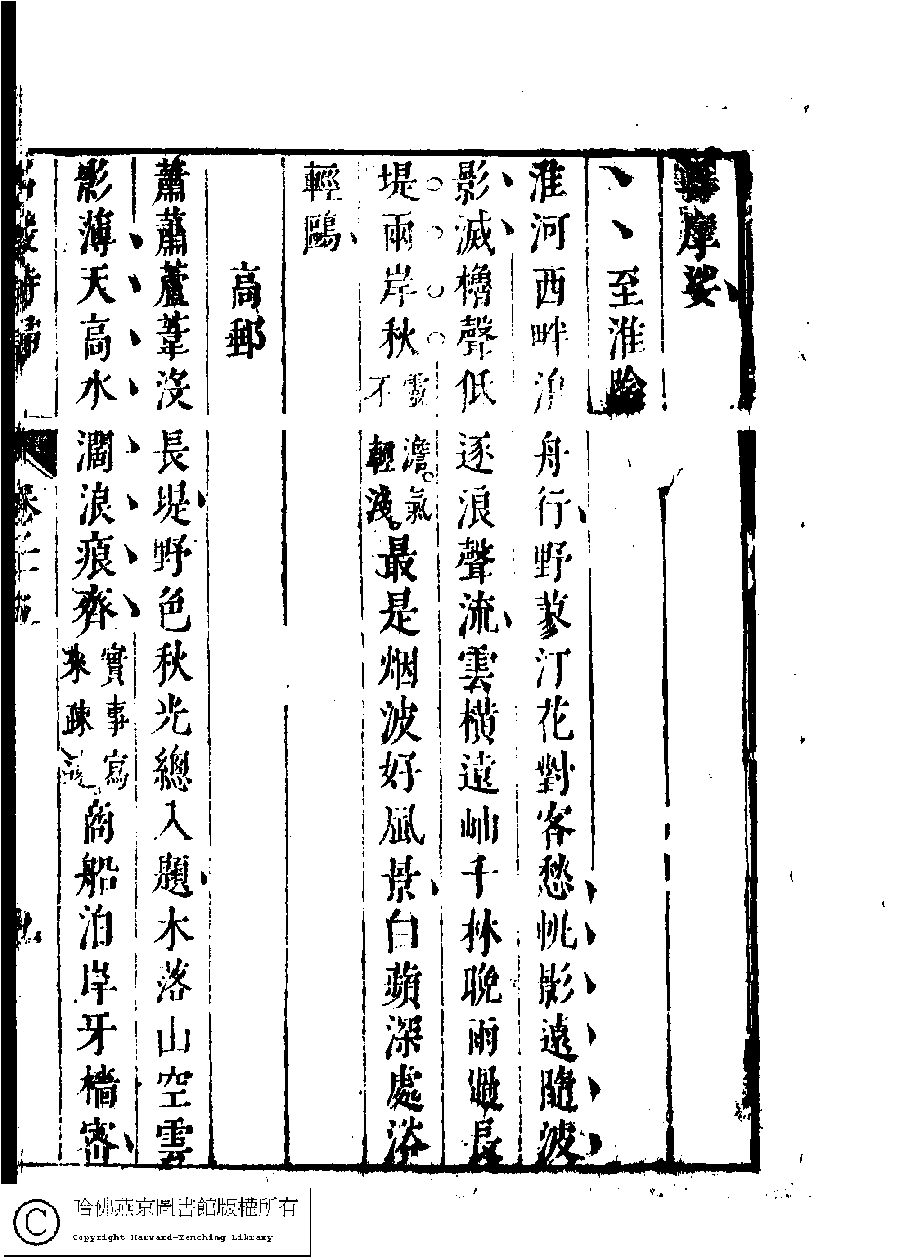 摩娑
至淮陰
淮河西畔泊舟行野蓼汀花對客愁帆影遠隨波
影滅櫓聲低逐浪聲流雲橫遠岫千林晚雨過長
堤兩岸秋靈氣不輕淺澹最是烟波好風景白蘋深處浴
輕鷗
高郵
蕭蕭蘆葦沒長堤野色秋光總入題木落山空雲
影薄天高水濶浪痕齊實事寫來疎商船泊岸牙檣密
名媛詩歸
卷二五
哈佛燕京圖書館版權所有
Copyright Harvard-Yenching Library